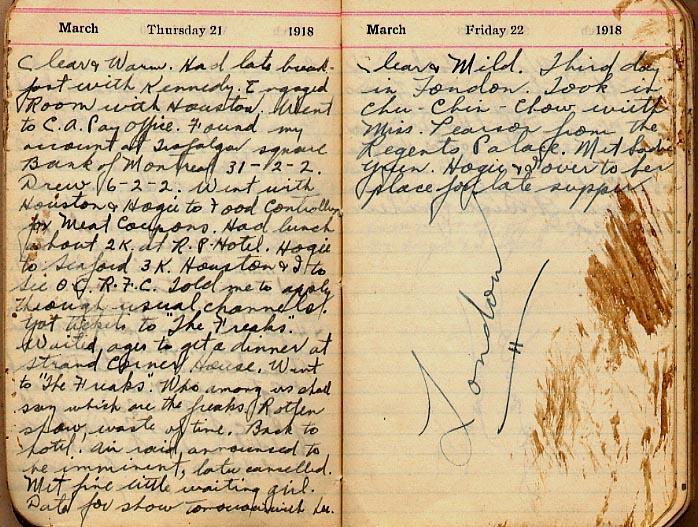 March Thursday 21 1918
Clear & Warm. Had late break-
fast with Kennedy. Engaged
Room with Houston. Went
to C.A. Pay Office. Found my
account at Trafalgar square
Bank of Montreal 31-12-2.
Drew 16-2-2. Went with
Houston & Hogie to Food Controller
for Meat Coupons. Had lunch
about 2K at R.P. Hotel. Hogie
to Seaford 3K. Houston & I to
see O.C. R.F.C. Told me to apply
through usual channels.
Got tickets to "The Freaks".
Waited ages to get a dinner at
Strand Corner House. Went
to "The Freaks". Who among us shall
say which are the freaks. Rotten
show, waste of time. Back to
hotel. Air raid announced to
be imminent, later cancelled.
Met fine little waiting girl.
Date for show tomorrow with her.
March Friday 22 1918
Clear & Mild. Third day
in London. Took in
Chu-Chin-Chow with
Miss. Pearson from the
Regents Palace. Met
Hogie & I over to her
place for late supper
London